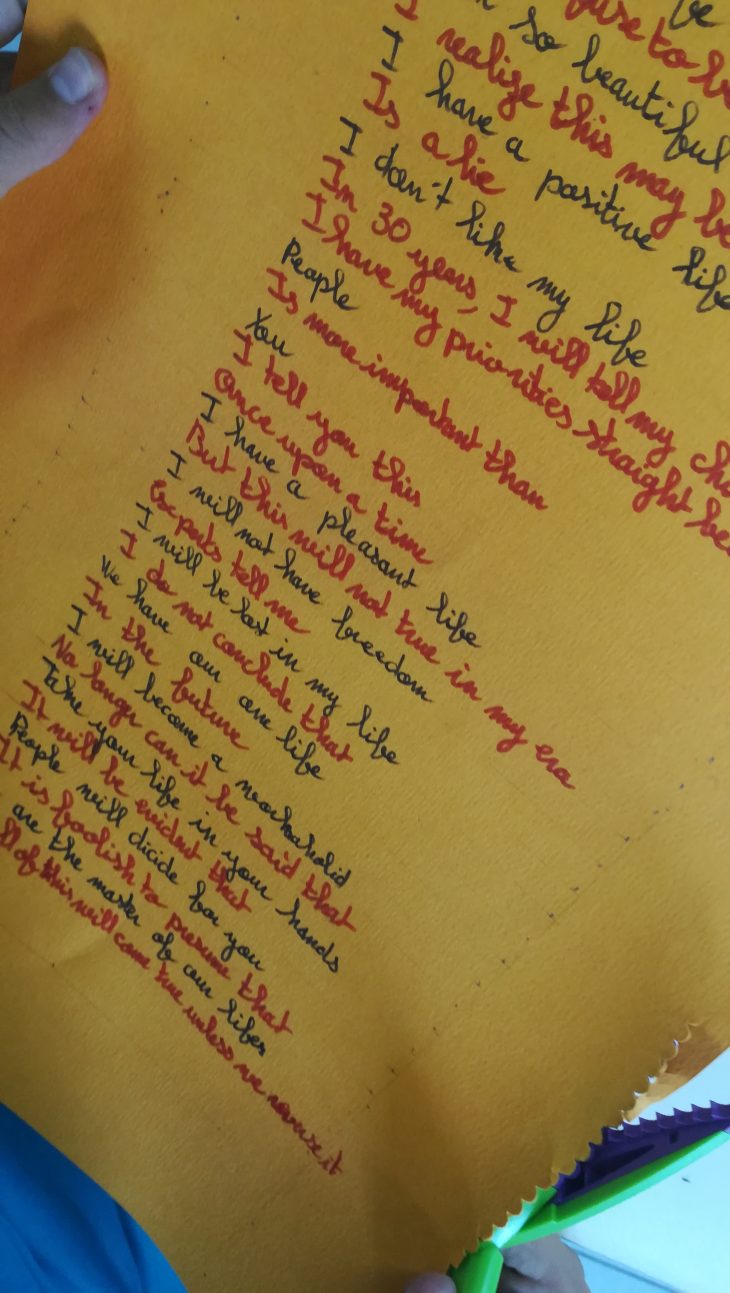 be
use to be
so beautiful
I realize this may be
I have a positive life
Is a lie
I don't like my life
In 30 years, I will tell my chi
I have my priorities straight bec
People
Is more important than
You
I tell you this
Once upon a time
I have a pleasant life
But this will not true in my era
I will not have freedom
Experts tell me
I will be lost in my life
I do not conclude that
We have our one life
In the future
I will become a workaholid
No longer can it be said that
Take your life in your hands
It will be evident that
People will dicide for you
It is foolish to presume that
are the master of our lifes
ll of this will came true unless we reveuse it